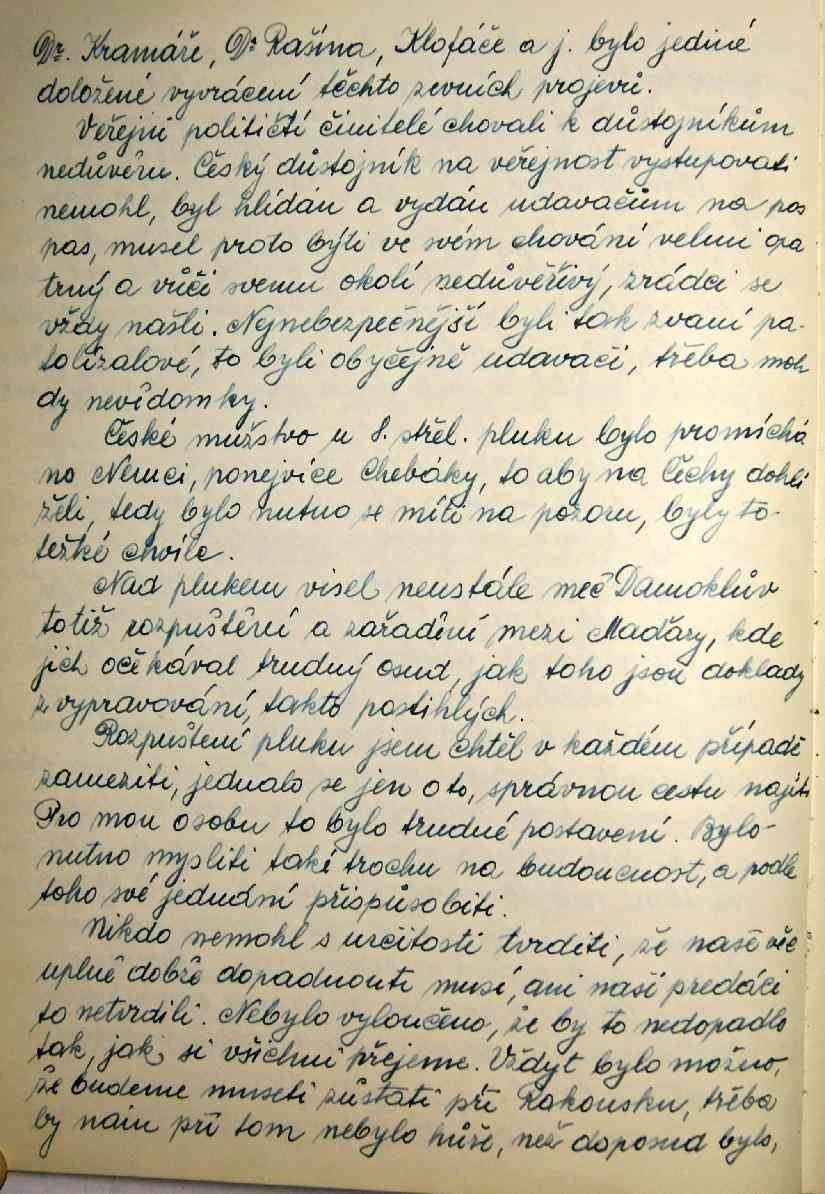 Dr. Kramáře, Dr Rašína, Klofáče a j. bylo jediné
doložené vyvrácení těchto zevních projevů.
Veřejní političtí činitelé chovali k důstojníkům
nedůvěru. Český důstojník na veřejnost vystupovati
nemohl, byl hlídán a vydán udavačům na pos
pas, musel proto býti ve svém chování velmi opa
trný a vůči svemu okolí nedůvěřivý, zrádci se
vždy našli. Nejnebezpečnější byli tak zvaní pa-
tolízalové, to byli obyčejně udavači, třeba mnoh
dy nevědomky.
České mužstvo u 8. střel. pluku bylo promíchá
no Němci, ponejvíce Chebáky, to aby na Čechy dohlí
želi, tedy bylo nutno se míti na pozoru, byly to-
težké chvíle.
Nad plukem visel neustále meč Damoklův
totiž rozpuštění a zařadění mezi Maďary, kde
jich očekával trudný osud, jak toho jsou doklady
z vypravování, takto postihlých.
Rozpuštení pluku jsem chtěl v každém případě
zameziti, jednalo se jen o to, správnou cestu najíti
Pro mou osobu to bylo trudné postavení. Bylo-
nutno mysliti také trochu na budoucnost, a podle
toho své jednání přispůsobiti.
Nikdo nemohl s určitosti tvrditi, že naše věc
uplně dobře dopadnouti musí, ani naší predáci
to netvrdili. Nebylo vyloučeno, že by to nedopadlo
tak, jak si všichni přejeme. Vždyt bylo možno,
že budeme museti zůstati při Rakousku, třeba
by nám při tom nebylo hůře, než doposud bylo,